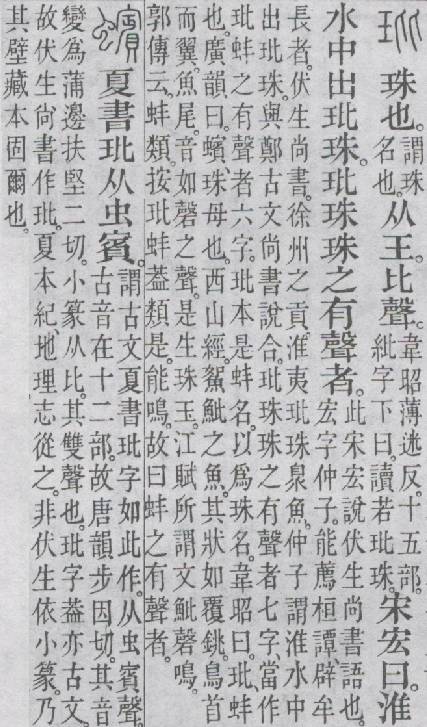 玭 珠也。謂珠名也。从王。比聲。韋昭薄迷反。十五部。紕字下曰。讀若玭珠。宋宏曰。淮
水中出玭珠。玭珠珠之有聲者。此宋宏說伏生尙書語也。宏字仲子。能薦桓譚。辟牟
長者。伏生尙書。徐州之貢。淮夷玭珠臮魚。仲子謂淮水中
出玭珠。與鄭古文尙書說合。玭珠珠之有聲者七字當作
玭蚌之有聲者六字。玭本是蚌名。以爲珠名。韋昭曰。玭、蚌
也。廣韻曰。蠙、珠母也。西山經。鴽魮之魚。其狀如覆銚。鳥首
而翼魚尾。音如磬之聲。是生珠玉。江賦所謂文魮磬鳴。
郭傳云。蚌類。按玭蚌葢類是。能鳴。故曰蚌之有聲者。
蠙 夏書玭从虫賓。謂古文夏書玭字如此作。从虫賓聲。古音在十二部。故唐韻步因切。其音
變爲蒲邊扶堅二切。小篆从比。其雙聲也。玭字葢亦古文。
故伏生尙書作玭。夏本紀地理志從之。非伏生依小篆。乃
其壁藏本固爾也。